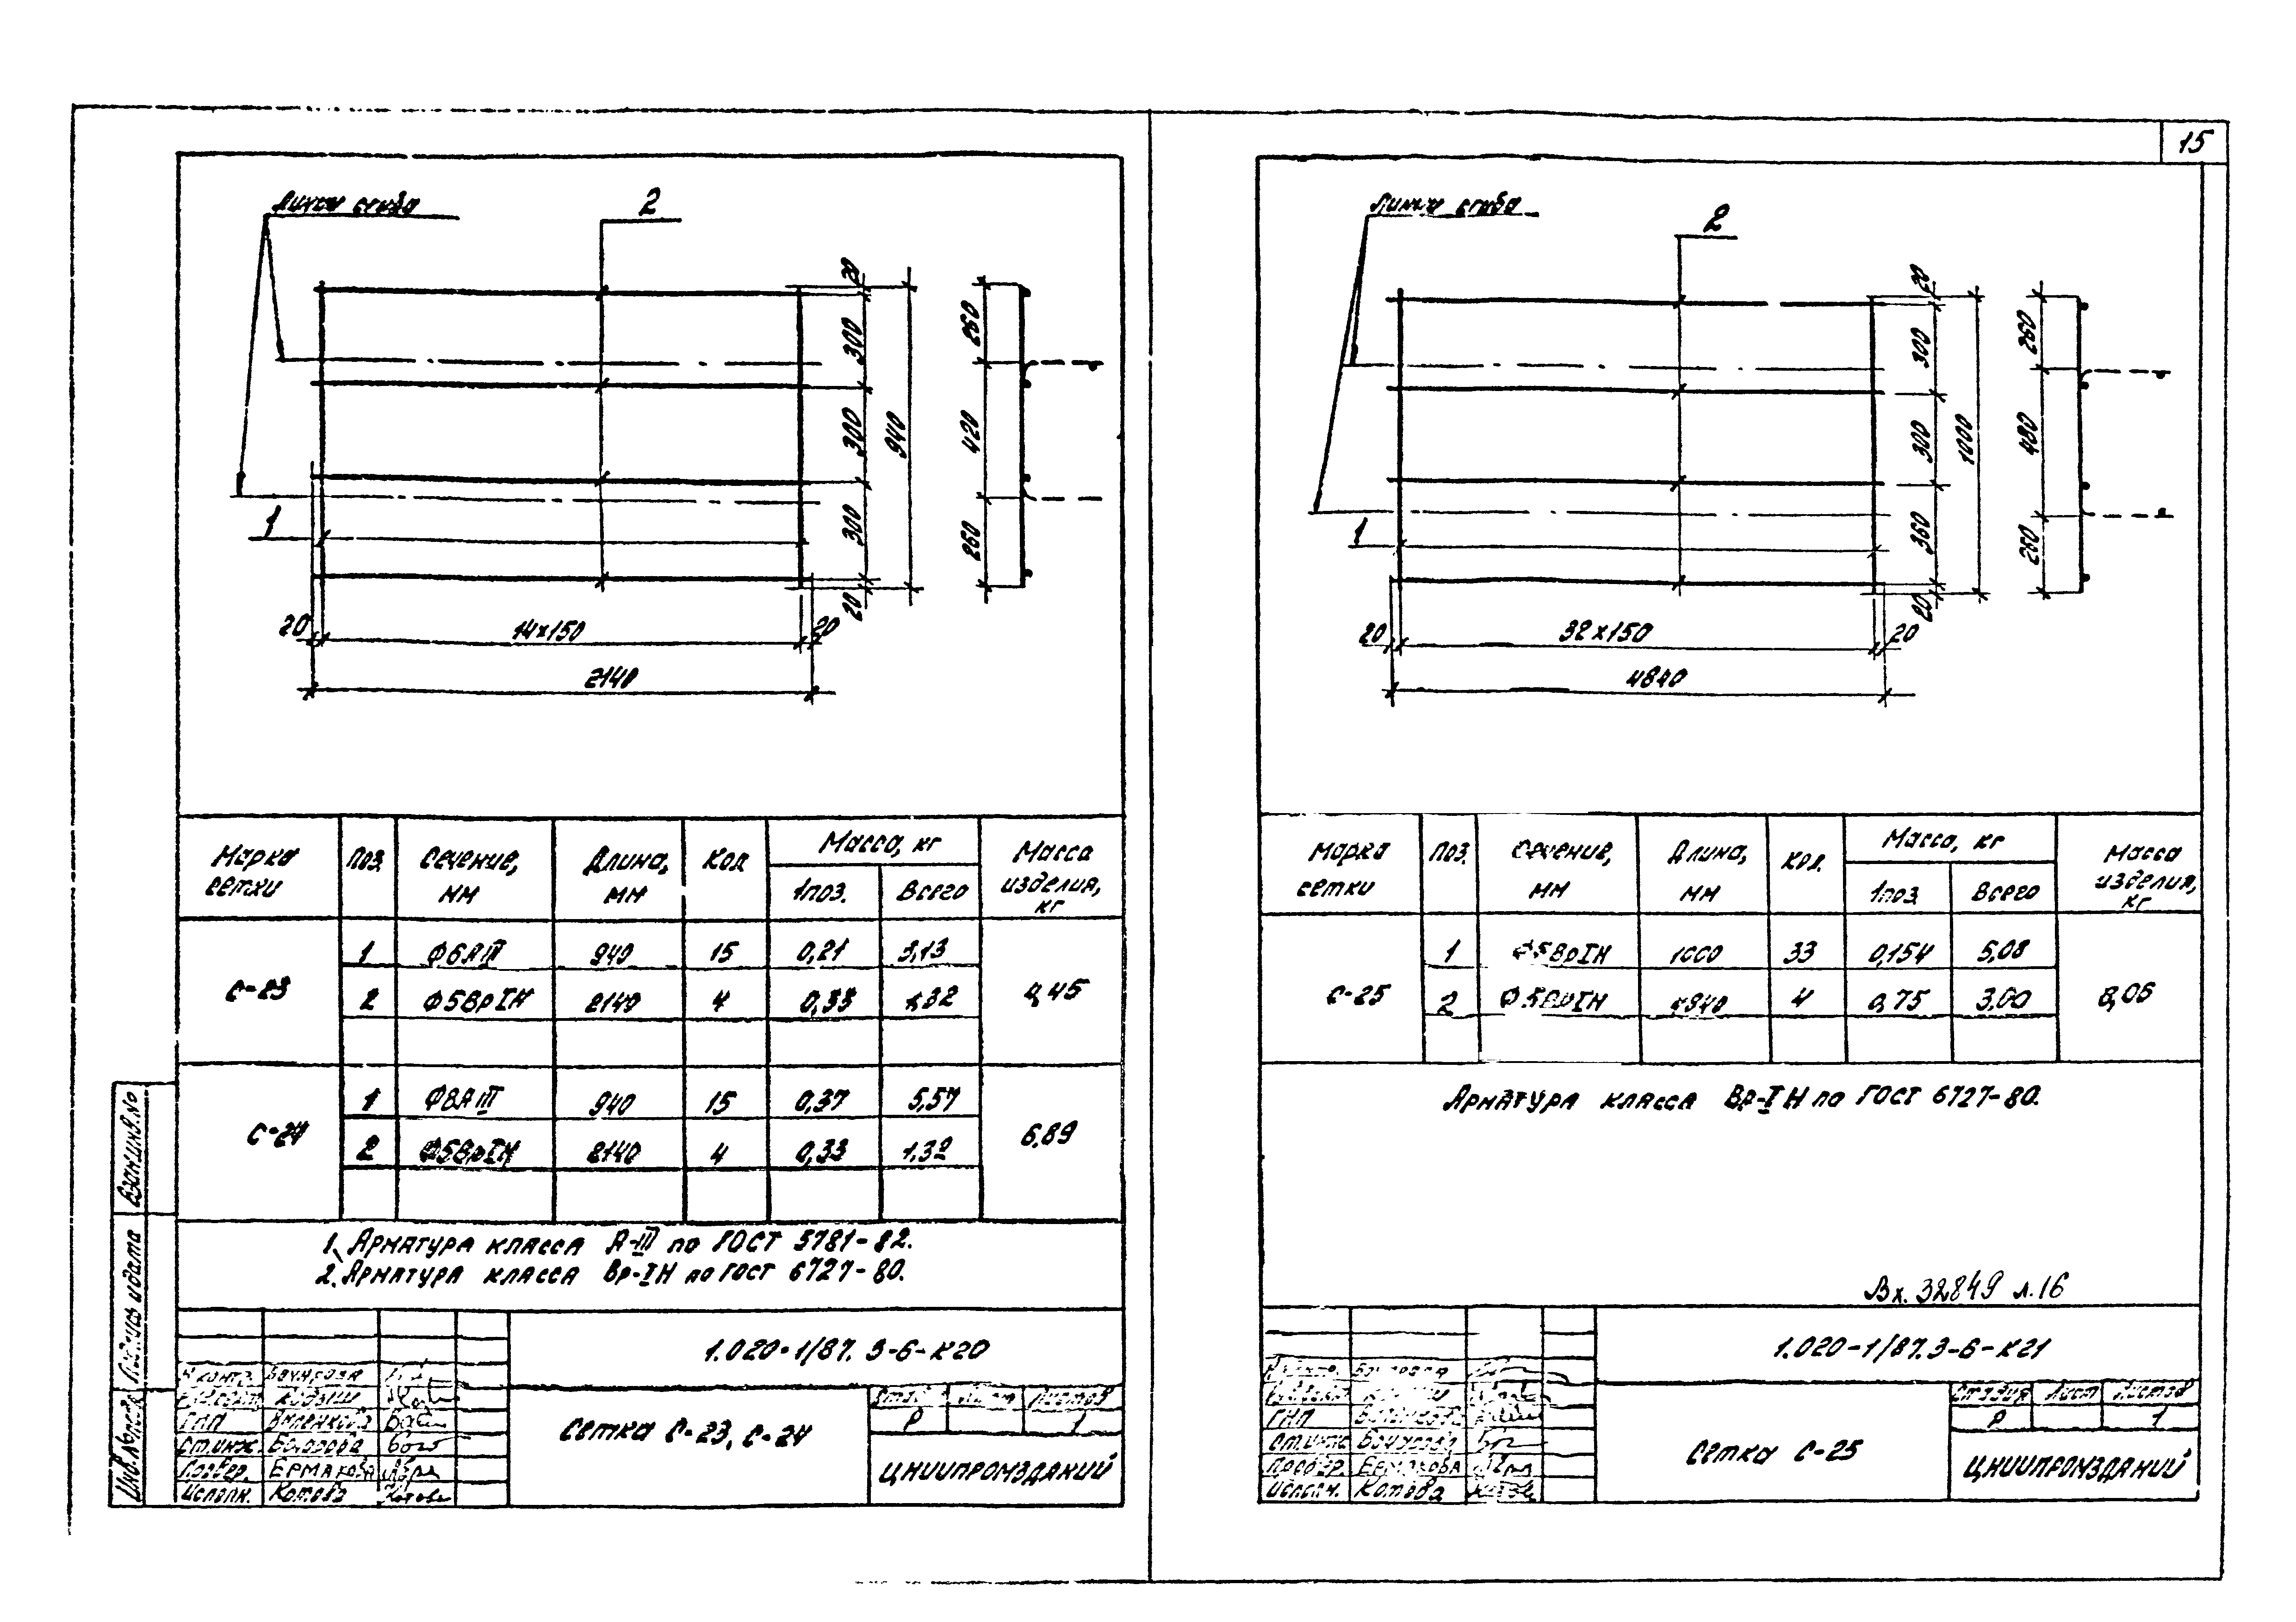 15
Линия сгиба
2
20
300
300
300
20
940
260
420
260
1
20
14×150
20
2140
Марка сетки
Поз.
Сечение, мм
Длина, мм
Кол
Масса, кг
1поз.
Всего
Масса изделия, кг
С-23
1 Ф6АIII 940 15 0,21 3,13
2 Ф5ВрIН 2140 4 0,33 1,32
4,45
С-24
1 Ф8АIII 940 15 0,37 5,57
2 Ф5ВрIН 2140 4 0,33 1,32
6,89
1. Арматура класса А-III по ГОСТ 5781-82.
2. Арматура класса Вр-IН по ГОСТ 6727-80.
Взам.инв.№
Подпись и дата
Инв.№подл.
1.020-1/87. 3-6-К20
Н.контр. Бочурова
ГИП
Ст.инж.
Провер. Ермакова
Исполн. Котова
Сетка С-23, С-24
Стадия Лист Листов
Р 1
ЦНИИПРОМЗДАНИЙ
Линия сгиба
2
20
300
300
360
20
1000
260
480
260
1
20
32×150
20
4840
Марка сетки
Поз.
Сечение, мм
Длина, мм
Кол.
Масса, кг
1поз.
Всего
Масса изделия, кг
С-25
1 Ф5ВрIН 1000 33 0,154 5,08
2 Ф5ВрIН 4840 4 0,75 3,00
8,06
Арматура класса Вр-IН по ГОСТ 6727-80.
Вх. 32849 л.16
1.020-1/87.3-6-К21
ГИП
Ст.инж.
Провер. Ермакова
Исполн. Котова
Сетка С-25
Стадия Лист Листов
Р 1
ЦНИИПРОМЗДАНИЙ